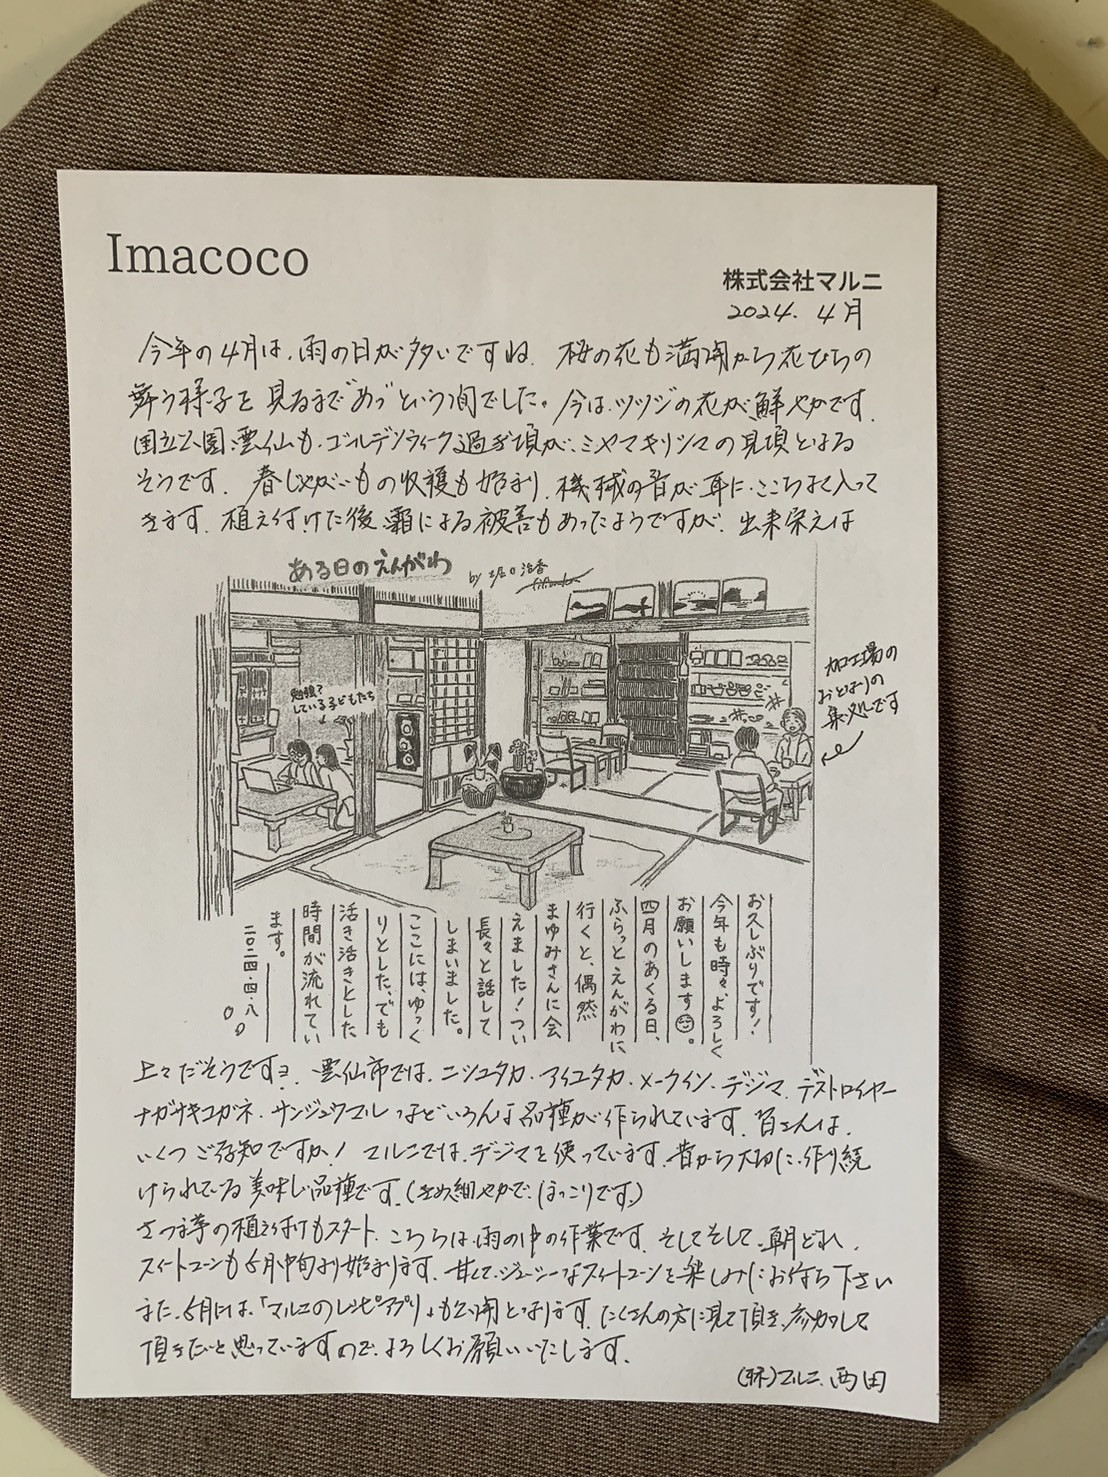 Imacoco
株式会社マルニ
2024. 4月
今年の4月は、雨の日が多いですね。桜の花も満開から花びらの
舞う様子を見るまで"あっ"という間でした。今は、ツツジの花が鮮やかです。
国立公園、雲仙も、ゴールデンウィーク過ぎ頃が、ミヤマキリシマの見頃となる
そうです。春じゃがいもの収穫も始まり、機械の音が耳に、ここちよく入って
きます。植え付けた後、霜による被害もあったようですが、出来栄えは
ある日のえんがわ
by 堀口治香
勉強?
している子どもたち
加工場の
おとなりの
集処です
お久しぶりです!
今年も時々、よろしく
お願いします。
四月のあくる日、
ふらっとえんがわに
行くと、偶然
まゆみさんに会
えました!つい
長々と話して
しまいました。
ここには、ゆっく
りとした、でも
活き活きとした
時間が流れてい
ます。
二〇二四・四・八
上々だそうですヨ。雲仙市では、ニシユタカ、アイユタカ、メークイン、デジマ、デストロイヤー
ナガサキコガネ、サンジュウマルなどいろんな品種が作られています。皆さんは、
いくつご存知ですか! マルニでは、デジマを使っています。昔から大切に、作り続
けられている美味しい品種です。(きめ細やかで、ほっこりです。)
さつま芋の植え付けもスタート。こちらは、雨の中の作業です。そしてそして、朝どれ、
スイートコーンも5月中旬より始まります。甘くて、ジューシーなスイートコーンを楽しみにお待ち下さい
また、5月には、「マルニのレシピアプリ」も公開となります。たくさんの方に見て頂き、参加して
頂きたいと思っていますので、よろしくお願いいたします。
(株)マルニ 西田